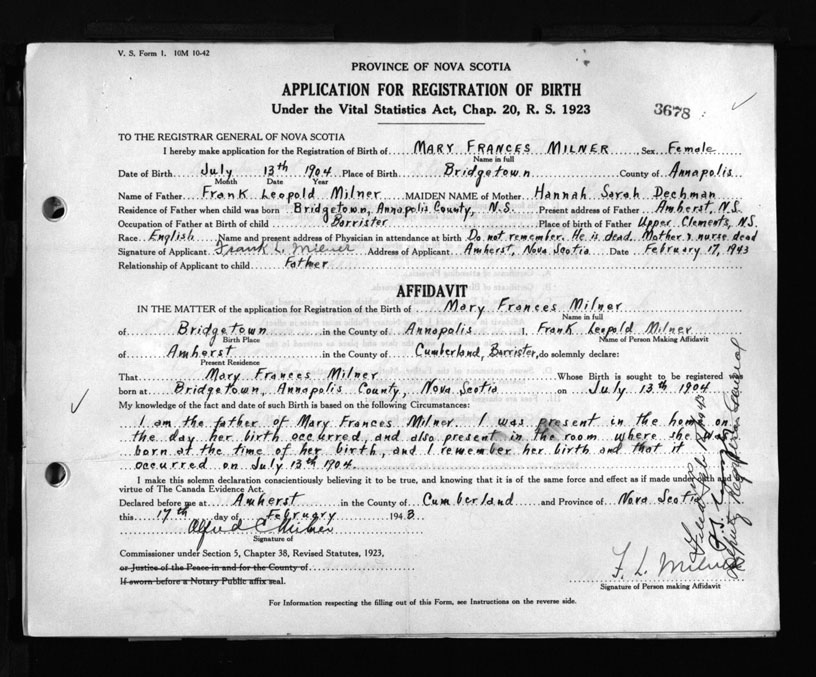 V. S. Form 1. 10M 10-42
PROVINCE OF NOVA SCOTIA
APPLICATION FOR REGISTRATION OF BIRTH
Under the Vital Statistics Act, Chap. 20, R. S. 1923
3678
TO THE REGISTRAR GENERAL OF NOVA SCOTIA
I hereby make application for the Registration of Birth of MARY FRANCES MILNER Sex Female
Name in full
Date of Birth July 13th 1904 Place of Birth Bridgetown County of Annapolis
Month Date Year
Name of Father Frank Leopold Milner MAIDEN NAME of Mother Hannah Sarah Dechman
Residence of Father when child was born Bridgetown, Annapolis County, N.S. Present address of Father Amherst, N.S.
Occupation of Father at Birth of child Barrister Place of birth of Father Upper Clements, N.S.
Race English Name and present address of Physician in attendance at birth Do not remember. He is dead. Mother & nurse dead
Signature of Applicant Frank L. Milner Address of Applicant Amherst, Nova Scotia Date February 17, 1943
Relationship of Applicant to child Father
AFFIDAVIT
IN THE MATTER of the application for Registration of the Birth of Mary Frances Milner
Name in full
of Bridgetown in the County of Annapolis I, Frank Leopold Milner
Birth Place Name of Person Making Affidavit
of Amherst in the County of Cumberland, Barrister, do solemnly declare:
Present Residence
That Mary Frances Milner Whose Birth is sought to be registered was
born at Bridgetown, Annapolis County, Nova Scotia on July 13th 1904
My knowledge of the fact and date of such Birth is based on the following Circumstances:
I am the father of Mary Frances Milner. I was present in the home on
the day her birth occurred, and also present in the room where she was
born at the time of her birth, and I remember her birth and that it
occurred on July 13th 1904.
I make this solemn declaration conscientiously believing it to be true, and knowing that it is of the same force and effect as if made under oath and
virtue of The Canada Evidence Act.
Declared before me at Amherst in the County of Cumberland and Province of Nova Scotia
this 17th day of February 1943
Alfred E Milner
Signature of
Commissioner under Section 5, Chapter 38, Revised Statutes, 1923,
or Justice of the Peace in and for the County of
If sworn before a Notary Public affix seal.
F. L. Milner
Signature of Person making Affidavit
Deputy Registrar General
For Information respecting the filling out of this Form, see Instructions on the reverse side.